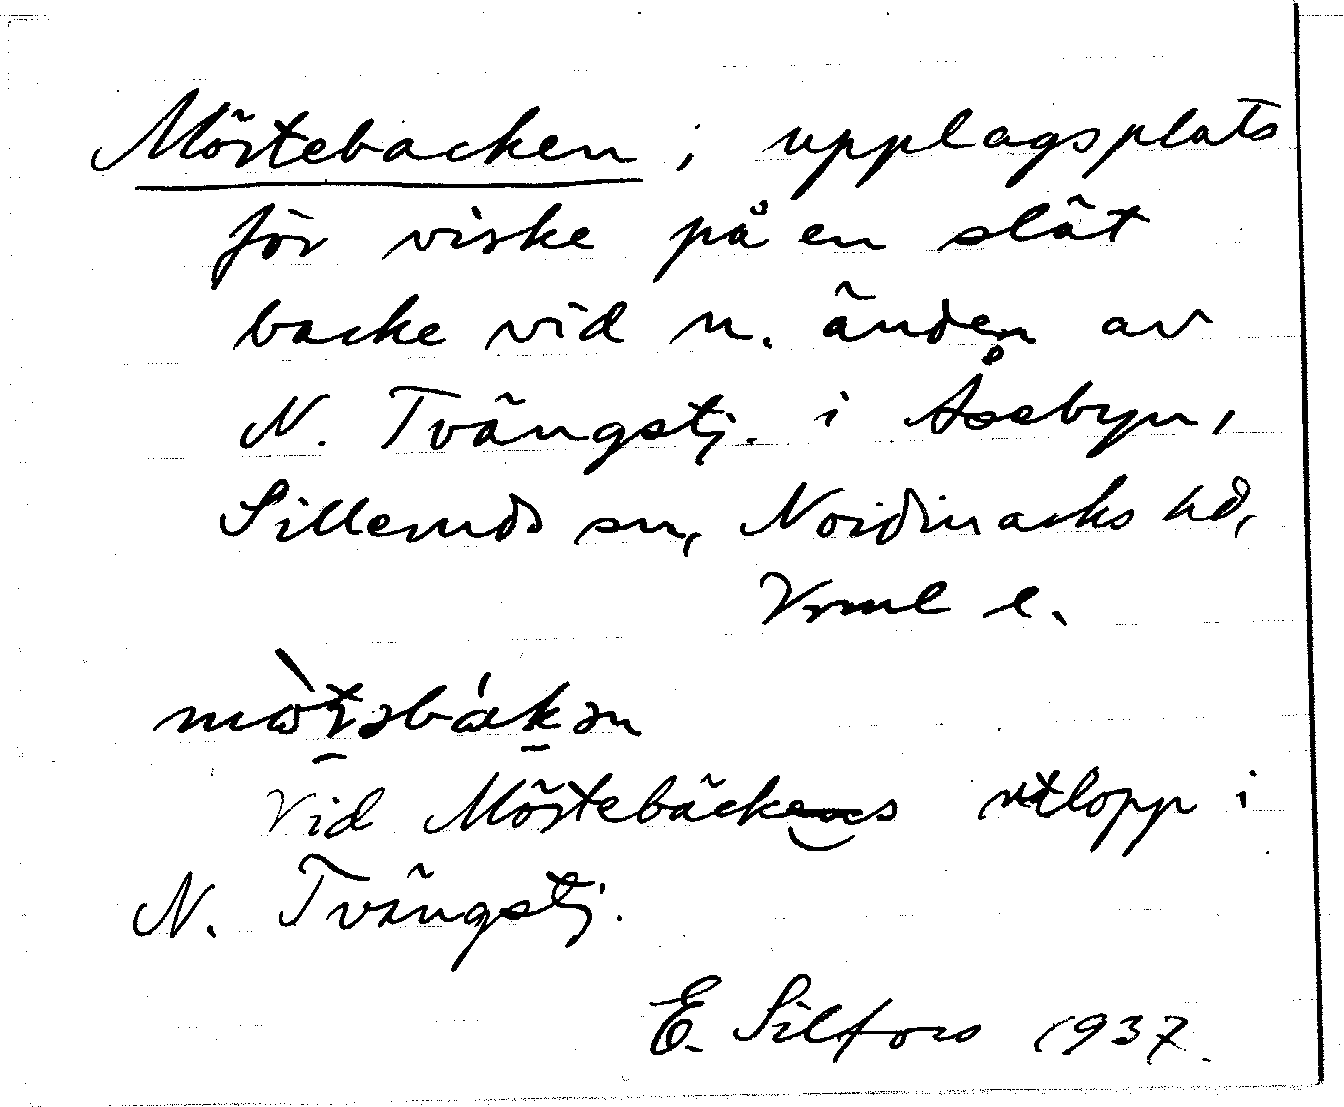 Mörtebacken ; upplagsplats
för virke på en slät
backe vid n. änden av
N. Tvängstj. i Åsebyn,
Silleruds sn, Nordmarks hd,
Vrml l.
Vid Mörtebäckens utlopp i
N. Tvängstj.
E. Silfors 1937.